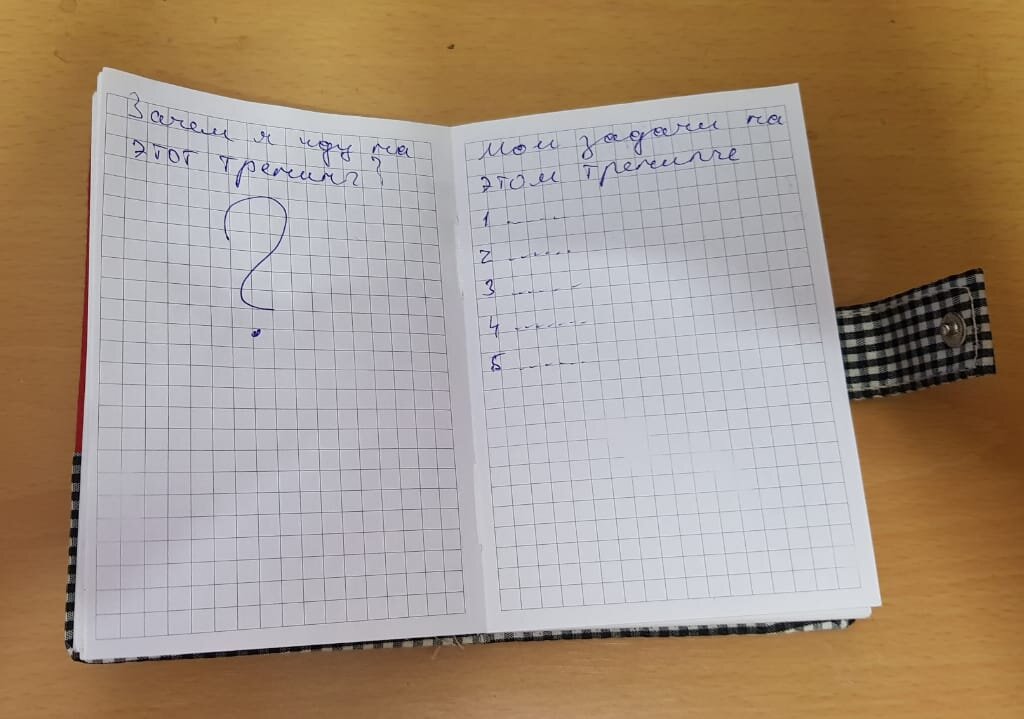 Зачем я иду на
этот тренинг?
?
Мои задачи на
этом тренинге
1 -----
2 ------
3 ------
4 ------
5 ------